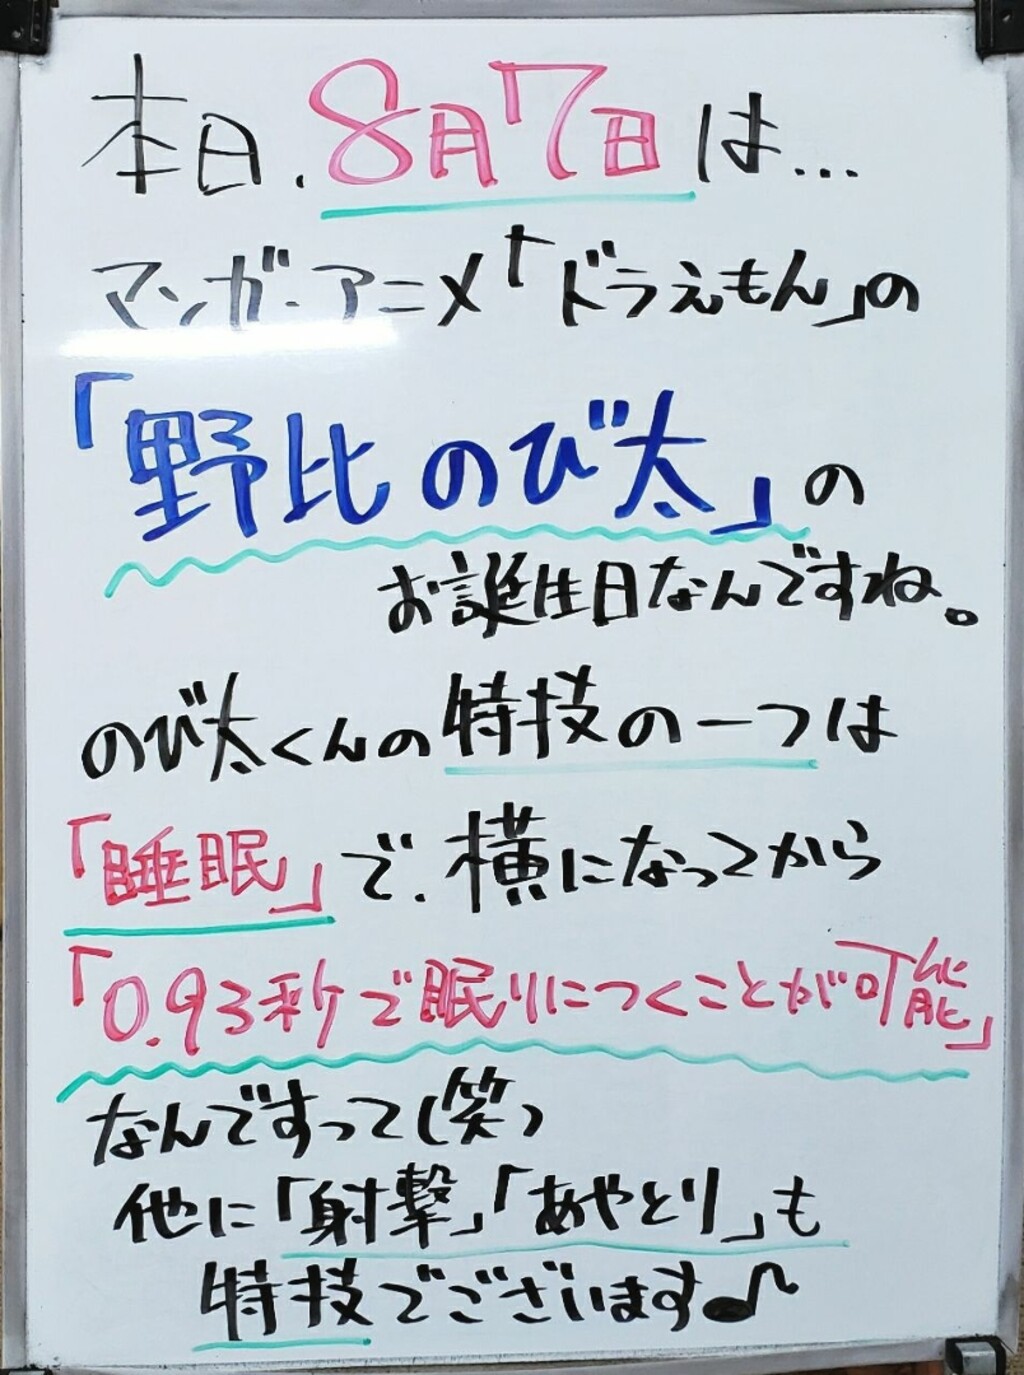 本日、8月7日は…
マンガ・アニメ「ドラえもん」の
「野比のび太」の
お誕生日なんですね。
のび太くんの特技の一つは
「睡眠」で、横になってから
「0.93秒で眠りにつくことが可能」
なんですって(笑)
他に「射撃」「あやとり」も
特技でございます♪